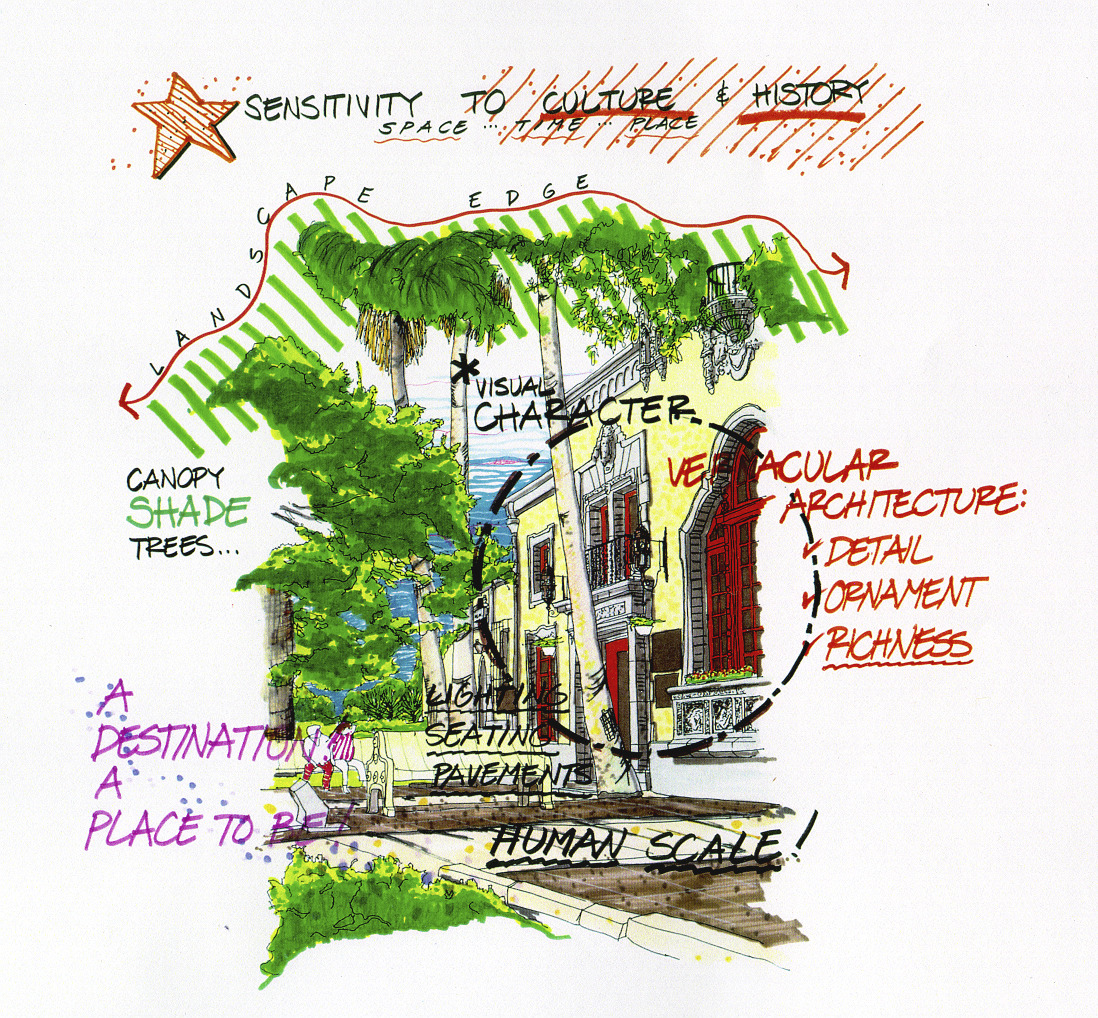 SENSITIVITY TO CULTURE & HISTORY
SPACE ... TIME ... PLACE
LANDSCAPE EDGE
* VISUAL
CHARACTER
CANOPY
SHADE
TREES...
VERNACULAR
ARCHITECTURE:
✓ DETAIL
✓ ORNAMENT
✓ RICHNESS
A
DESTINATION
A
PLACE TO BE!
LIGHTING
SEATING
PAVEMENTS
HUMAN SCALE!